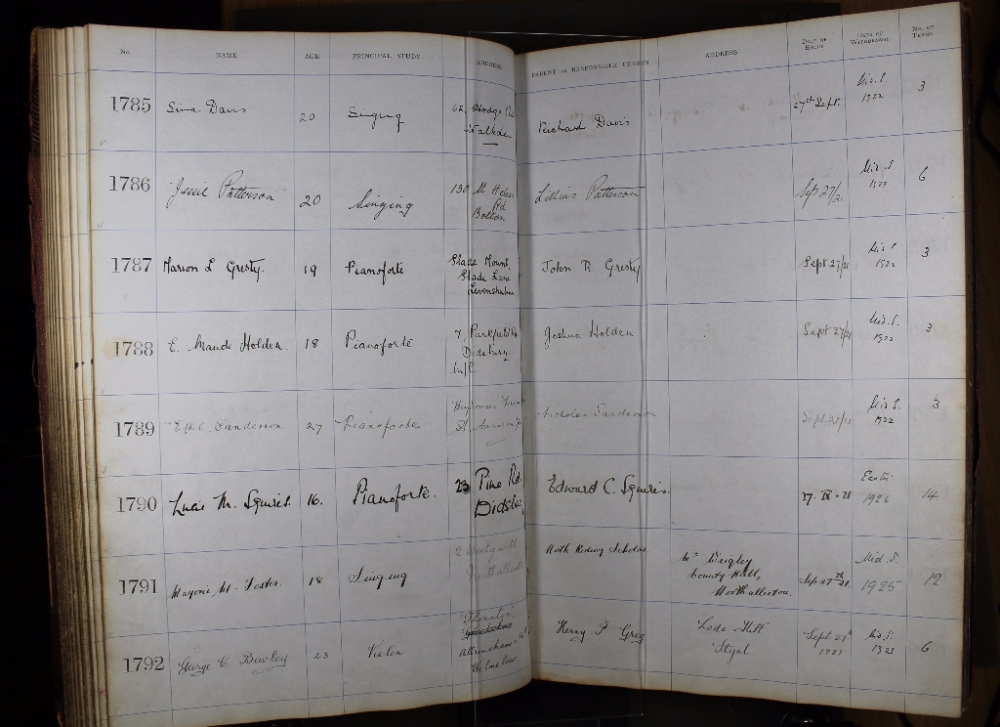 No. NAME AGE PRINCIPAL STUDY ADDRESS PARENT or RESPONSIBLE PERSON ADDRESS DATE OF ENTRY DATE OF WITHDRAWAL No. OF TERMS
1785 Davis 20 Singing 62, Richard Davis 27th Sept. Mid. S. 3
Walkden 1922
1786 Jessie Patterson 20 Singing 130 St Helens Patterson Sep 27/21 Mid. S 6
Rd 1923
Bolton
1787 Marion L Gresty. 19 Pianoforte Slade Mount, John R. Gresty Sept. 27/21 Mid S 3
Slade Lane 1922
Levenshulme
1788 E. Maude Holden. 18 Pianoforte 7, Joshua Holden Sept 27/21 Mid. S. 3
Didsbury 1922
M/C
1789 Ethel Sanderson 27 Pianoforte Nicholas Sanderson Sept. 27/21 Mid S. 3
St. Anne's 1922
1790 Lucie M. Squires. 16. Pianoforte. 23 Pine Rd. Edward C. Squires. 27. IX. 21 Easter 14
Didsbury 1926
1791 Marjorie M. Foster. 18 Singing 2 North Riding Scholar Mr Wrigley Sep 27th 21 Mid. S. 12
County Hall, 1925
Northallerton.
1792 George C. Bewley 23 Violin Henry P Greg Lode Hill Sept. 27th Mid S. 6
Styal 1921 1923
Altrincham
Wilmslow